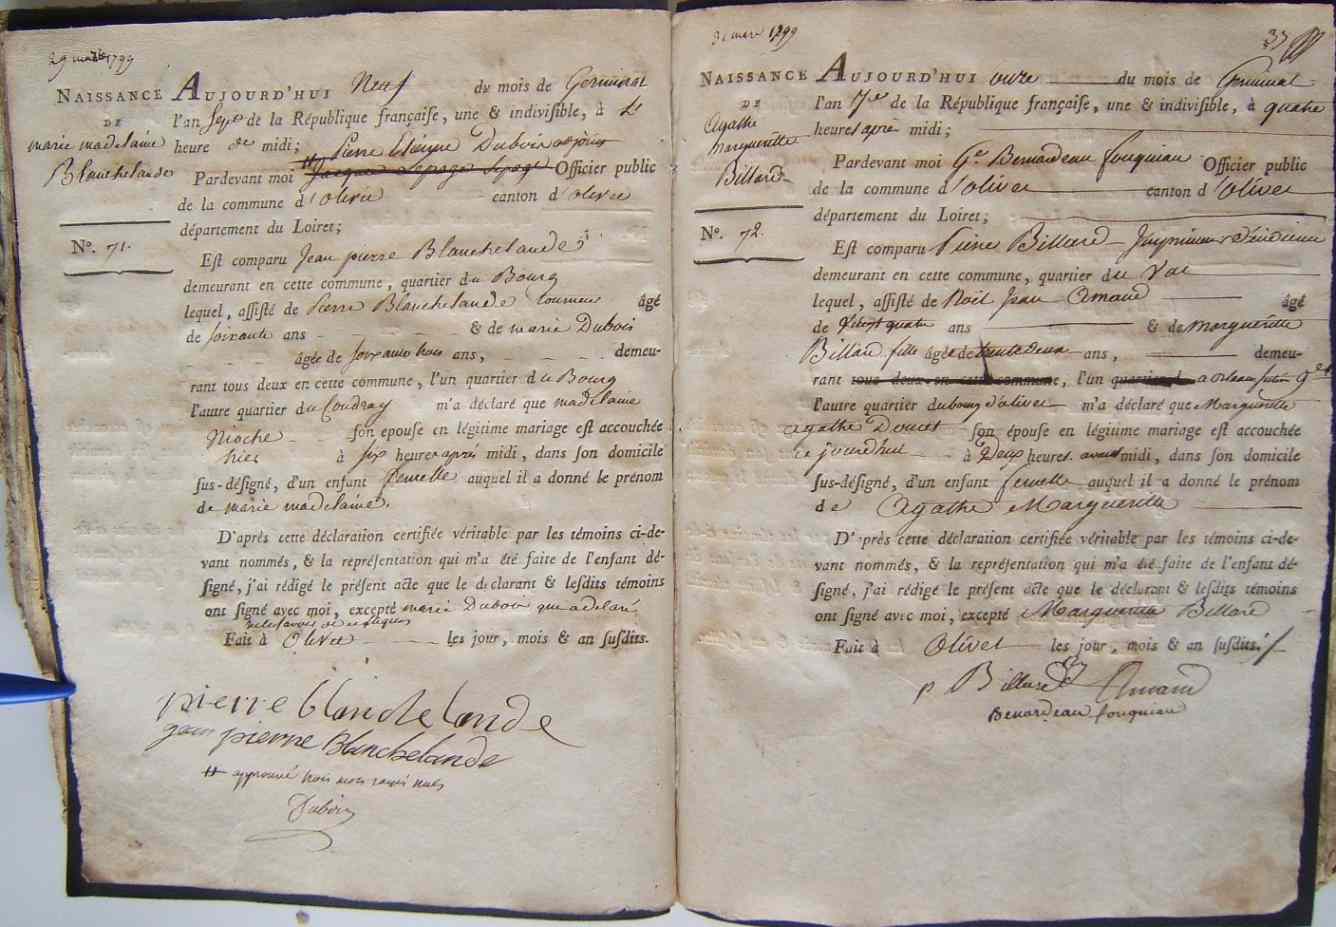 29 mars 1799
NAISSANCE
DE
marie madelaine
Blanchelande
N°. 71.
AUJOURD'HUI Neuf du mois de Germinal
l'an sept de la République françaife, une & indivifible, à
heure de midi; Pierre Etienne Dubois adjoint
Pardevant moi Jacques Lepage Officier public
de la commune d'olivet canton d'olivet
département du Loiret;
Eft comparu Jean pierre Blanchelande
demeurant en cette commune, quartier du Bourg
lequel, affifté de Pierre Blanchelande tonneur âgé
de soixante ans & de marie Dubois
âgée de soixante trois ans, demeu-
rant tous deux en cette commune, l'un quartier du Bourg
l'autre quartier du Coudray m'a déclaré que madelaine
Pioche fon époufe en légitime mariage eft accouchée
hier à six heures après midi, dans fon domicile
fus-défigné, d'un enfant femelle auquel il a donné le prénom
de marie madelaine.
D'après cette déclaration certifiée véritable par les témoins ci-de-
vant nommés, & la repréfentation qui m'a été faite de l'enfant dé-
figné, j'ai rédigé le préfent acte que le déclarant & lefdits témoins
ont figné avec moi, excepté marie Dubois qui a déclaré
ne le savoir
Fait à Olivet les jour, mois & an fufdits.
pierre blanchelande
jean pierre Blanchelande
# approuvé trois mots rayés nuls
Dubois
31 mars 1799
37
NAISSANCE
DE
Agathe
Margueritte
Billard
N°. 72.
AUJOURD'HUI onze du mois de Germinal
l'an 7e de la République françaife, une & indivifible, à quatre
heures après midi;
Pardevant moi Benardeau fouquiau Officier public
de la commune d'olivet canton d'olivet
département du Loiret;
Eft comparu Billard
demeurant en cette commune, quartier du Val
lequel, affifté de Noël Jean Amand âgé
de vingt quatre ans & de Margueritte
Billard fille âgée de trente deux ans, demeu-
rant tous deux en cette commune, l'un quartier a orleans
l'autre quartier du bourg d'olivet m'a déclaré que Margueritte
agathe Doucet fon époufe en légitime mariage eft accouchée
ce jourd'huy à Deux heures avant midi, dans fon domicile
fus-défigné, d'un enfant femelle auquel il a donné le prénom
de Agathe Margueritte
D'après cette déclaration certifiée véritable par les témoins ci-de-
vant nommés, & la repréfentation qui m'a été faite de l'enfant dé-
figné, j'ai rédigé le préfent acte que le déclarant & lefdits témoins
ont figné avec moi, excepté Margueritte Billard
Fait à Olivet les jour, mois & an fufdits.
p Billard Amand
Benardeau fouquiau